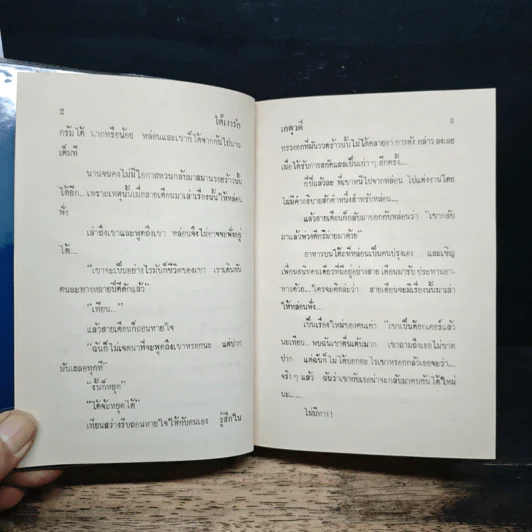 2
ใต้เงารัก
กรัมได้ มากหรือน้อย หล่อนและเขาก็ได้จากกันไปนาน
เต็มที
นานจนคงไม่มีโอกาสหวนกลับมาสมานรอยร้าวนั้น
ได้อีก...เพราะเหตุนั้นเมื่อสายเดือนมาเล่าเรื่องนั้นให้หล่อน
ฟัง
เล่าถึงเขาและพูดถึงเขา หล่อนจึงไม่อาจจะฟังอยู่
ได้...
"เขาจะเป็นอย่างไรมันก็ชีวิตของเขา เราเดินกัน
คนละทางหลายปีดีดักแล้ว"
"เทียน..."
แล้วสายเดือนก็ถอนหายใจ
"ฉันก็ไม่เจตนาที่จะพูดถึงเขาหรอกนะ... แต่ปาก
มันเผลอทุกที"
"งั้นก็หยุด"
"ได้จ้ะหยุดได้"
เทียนสว่างรีบถอนหายใจให้กับตนเอง รู้สึกใน
เกตุวดี
3
ทรวงอกที่มันรวดร้าวนั้นไม่ได้คลายอาการดังกล่าวลงเลย
เมื่อได้รับการสกัดแสลเป็นเก่าๆ อีกครั้ง...
ก็ปีแล้วละ ที่เขาหนีไปจากหล่อน ไปแต่งงานโดย
ไม่มีคำอธิบายสักคำหนึ่งสำหรับหล่อน...
แล้วสายเดือนก็กลับมาบอกกับหล่อนว่า "เขากลับ
มาแล้วพ่วงดีกรีม่ายมาด้วย"
อาหารบนโต๊ะที่หล่อนเป็นคนปรุงเอง และเชิญ
เพื่อนสนิทคนเดียวที่มีอยู่อย่างสายเดือนมารับประทานอา-
หารด้วย... ใครจะคิดล่ะว่า สายเดือนจะมีเรื่องนั้นมาเล่า
ให้หล่อนฟัง...
เป็นเรื่องใหม่ของคนเก่า "เขาเป็นด็อกเตอร์แล้ว
นะเทียน.. พบฉันเขาตื่นเต้นมาก เขาถามถึงเธอไม่ขาด
ปาก แต่ฉันก็ไม่ได้บอกอะไรเขาหรอกกลัวเธอจะว่า...
จริงๆ แล้ว ฉันว่าเขากับเธอน่าจะกลับมาคบกันได้ใหม่
นะ....."
ไม่มีทาง!